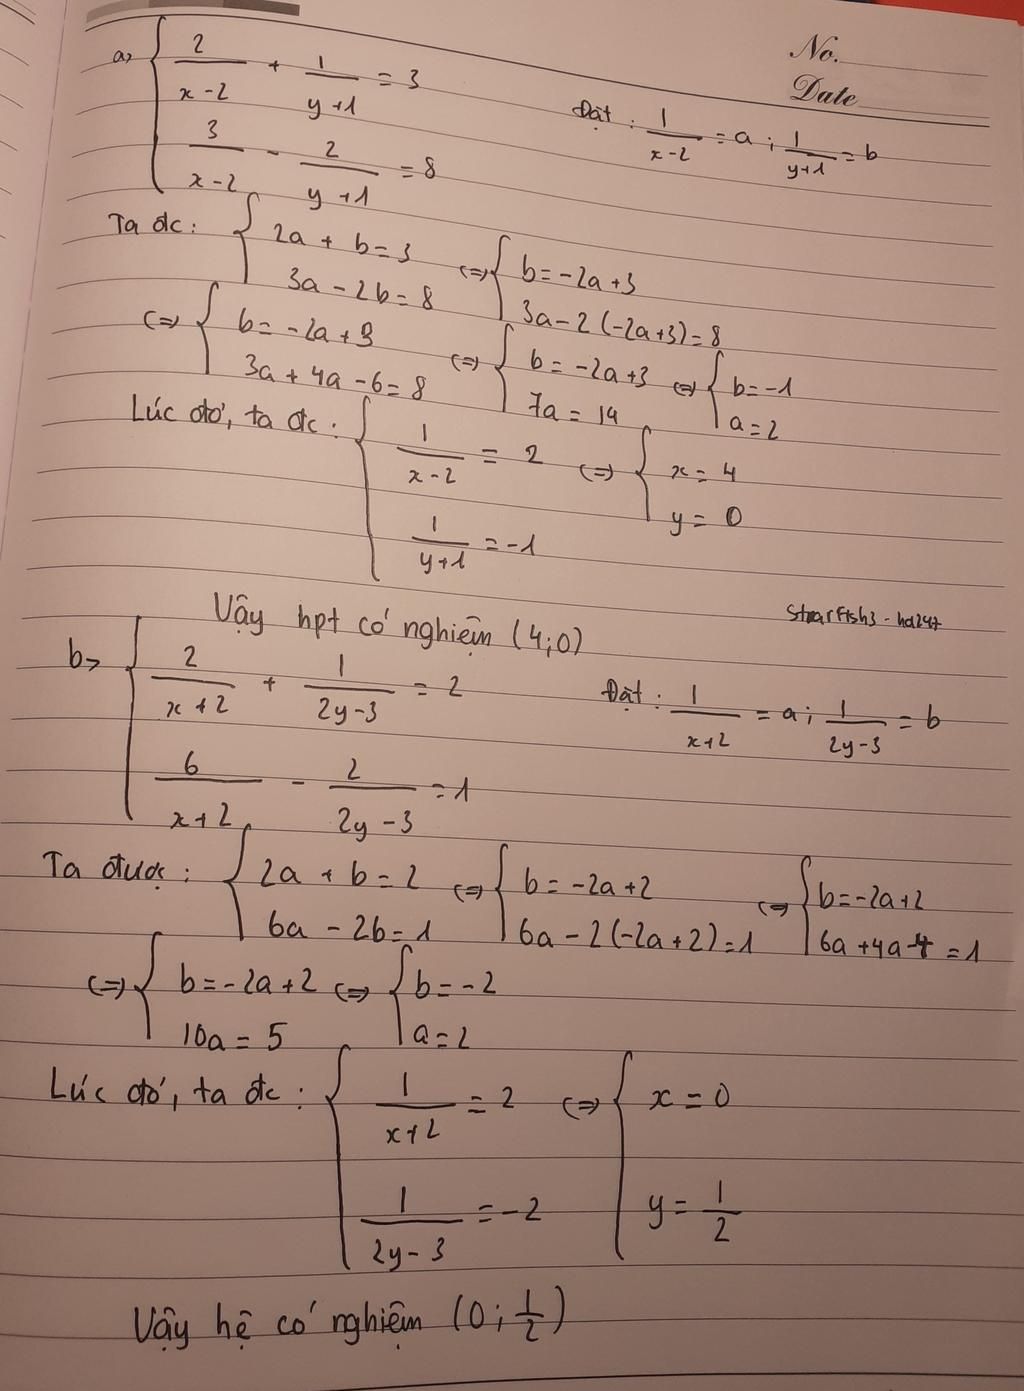 No.
Date
a> { 2/(x-2) + 1/(y+1) = 3
3/(x-2) - 2/(y+1) = 8
Đặt : 1/(x-2) = a ; 1/(y+1) = b
Ta đc: { 2a + b = 3 <=> { b = -2a+3
3a - 2b = 8 3a - 2(-2a+3) = 8
<=> { b = -2a+3 <=> { b = -2a+3 <=> { b = -1
3a + 4a - 6 = 8 7a = 14 a = 2
Lúc đó, ta đc : { 1/(x-2) = 2 <=> { x = 4
1/(y+1) = -1 y = 0
Vậy hpt có nghiệm (4;0)
Starfish3 - hd247
b> { 2/(x+2) + 1/(2y-3) = 2
6/(x+2) - 2/(2y-3) = 1
Đặt : 1/(x+2) = a ; 1/(2y-3) = b
Ta được : { 2a + b = 2 <=> { b = -2a+2 <=> { b = -2a+2
6a - 2b = 1 6a - 2(-2a+2) = 1 6a + 4a - 4 = 1
<=> { b = -2a+2 <=> { b = -2
10a = 5 a = 2
Lúc đó, ta đc : { 1/(x+2) = 2 <=> { x = 0
1/(2y-3) = -2 y = 1/2
Vậy hệ có nghiệm (0 ; 1/2)